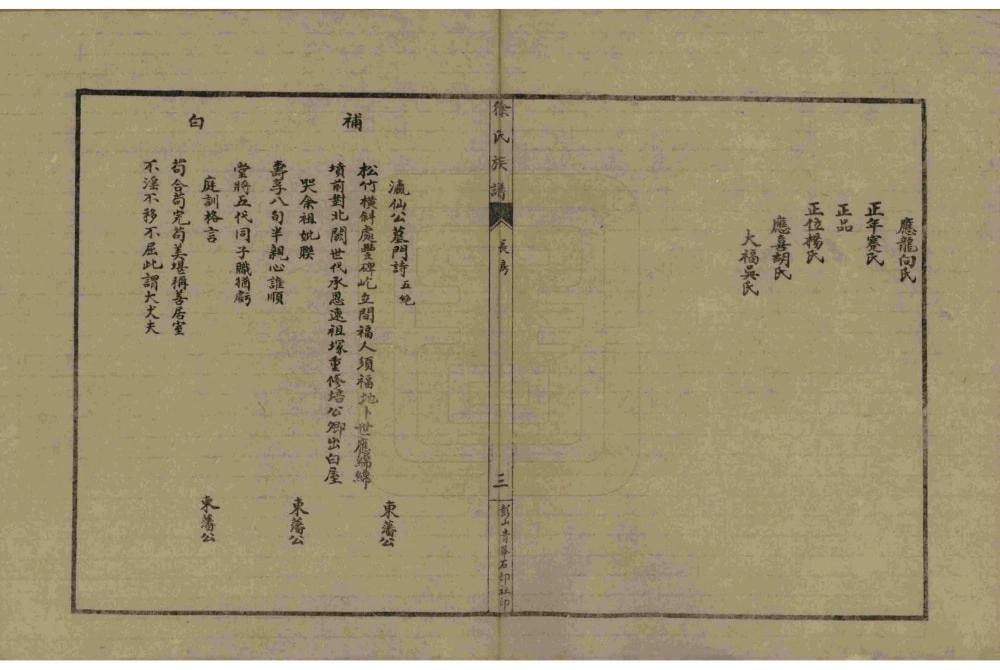 應龍向氏
正年蹇氏
正品
正位楊氏
應喜胡氏
大福吳氏
徐氏族譜
長房
三
彭山青華石印社印
補白
瀛仙公墓門詩 五絕
東藩公
松竹橫斜處豐碑屹立間福人須福地卜世應綿綿
墳前對北闕世代承恩速祖塚重修培公卿出白屋
哭余祖妣聯
東藩公
壽享八旬半親心誰順
堂將五代同子職猶虧
庭訓格言
東藩公
苟合苟完苟美堪稱善居室
不淫不移不屈此謂大丈夫